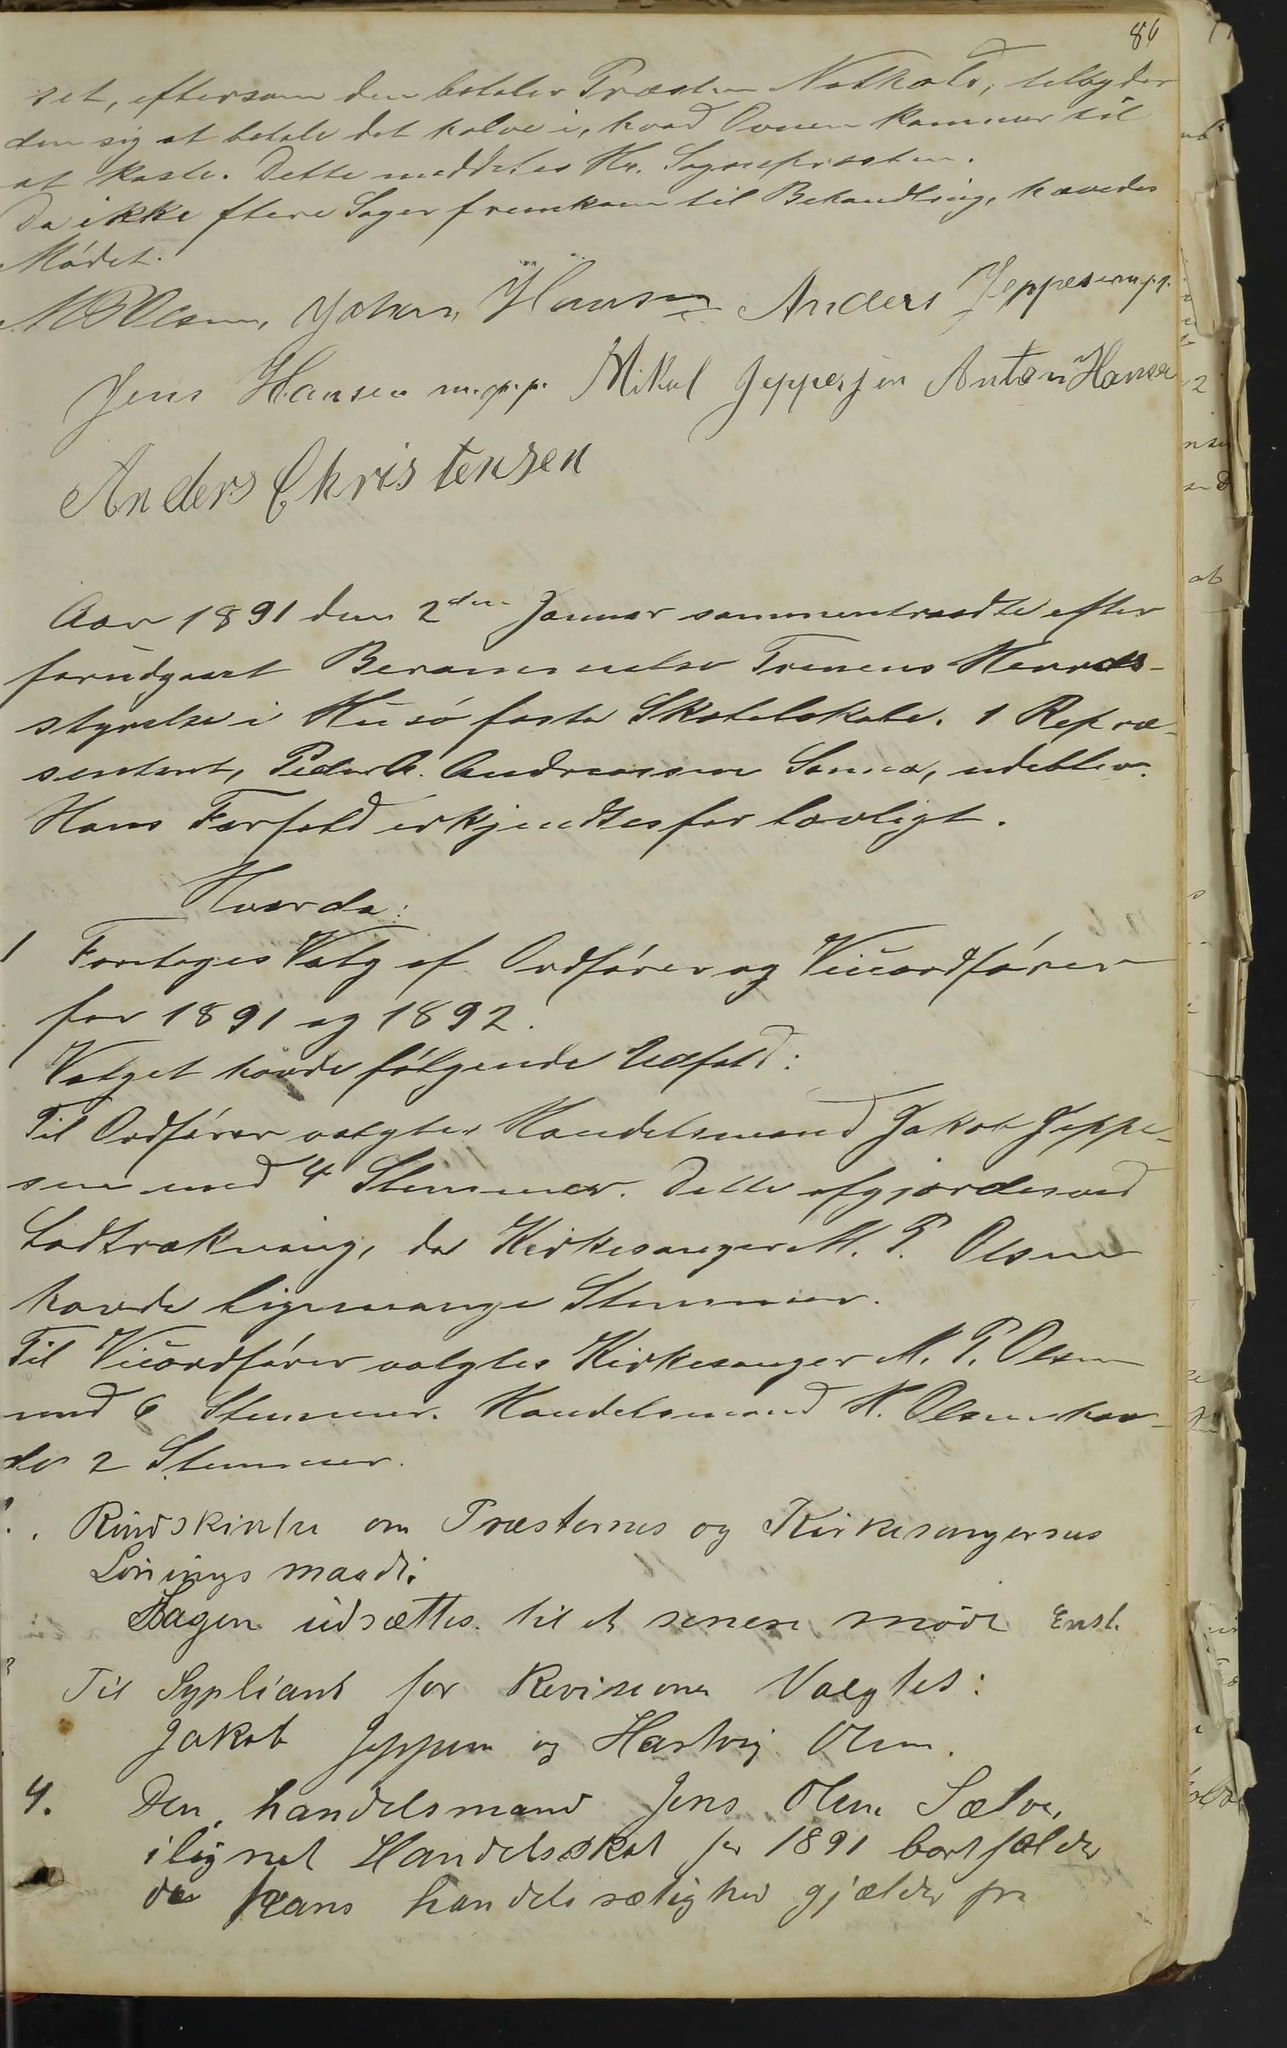 86
set, eftersom den betaler Præsten Natkost, tilbyder
den sig at betale det halve i, hvad Ovnen kommer til
at koste. Dette meddeles Hr. Sognepresten.
Da ikke flere Sager fremkom til Behandling, hævedes
Mødet.
M P Olsen, Johan Hansen Anders Jeppesen m.p.p.
Jens Hansen m.p.p. Mikal Jeppesen Anton Hansen
Anders Christensen
Aar 1891 den 2den Januar sammentraadte efter
forudgaaet Berammelse Trænens Herreds-
styrelse i Husø faste Skolelokale. 1 Repræ-
sentant, Peder A. Andreassen Sanna, udeblev.
Hans Forfald erkjendtes for lovligt.
Hvorda:
1 Foretoges Valg af Ordfører og Viceordfører
for 1891 og 1892.
Valget havde følgende Udfald:
Til Ordfører valgtes Handelsmand Jakob Jeppe-
sen med 4 Stemmer. Dette afgjordes ved
Lodtrækning, da Kirkesanger M. P. Olsen
havde ligemange Stemmer.
Til Viceordfører valgtes Kirkesanger M. P. Olsen
med 6 Stemmer. Handelsmand H. Olsen hav-
de 2 Stemmer.
. Rundskrivelse om Præsternes og Kirkesangernes
Lønings maade.
Sagen udsættes til et senere møde Enst.
Til Supliant for Revisionen Valgtes:
Jakob Jeppesen og Hartvig Olsen.
4. Den, handelsmand Jens Olsen Sælvær,
ilignet Handelsskat for 1891 bortfalder
da hans handelsrætighed gjælder fra